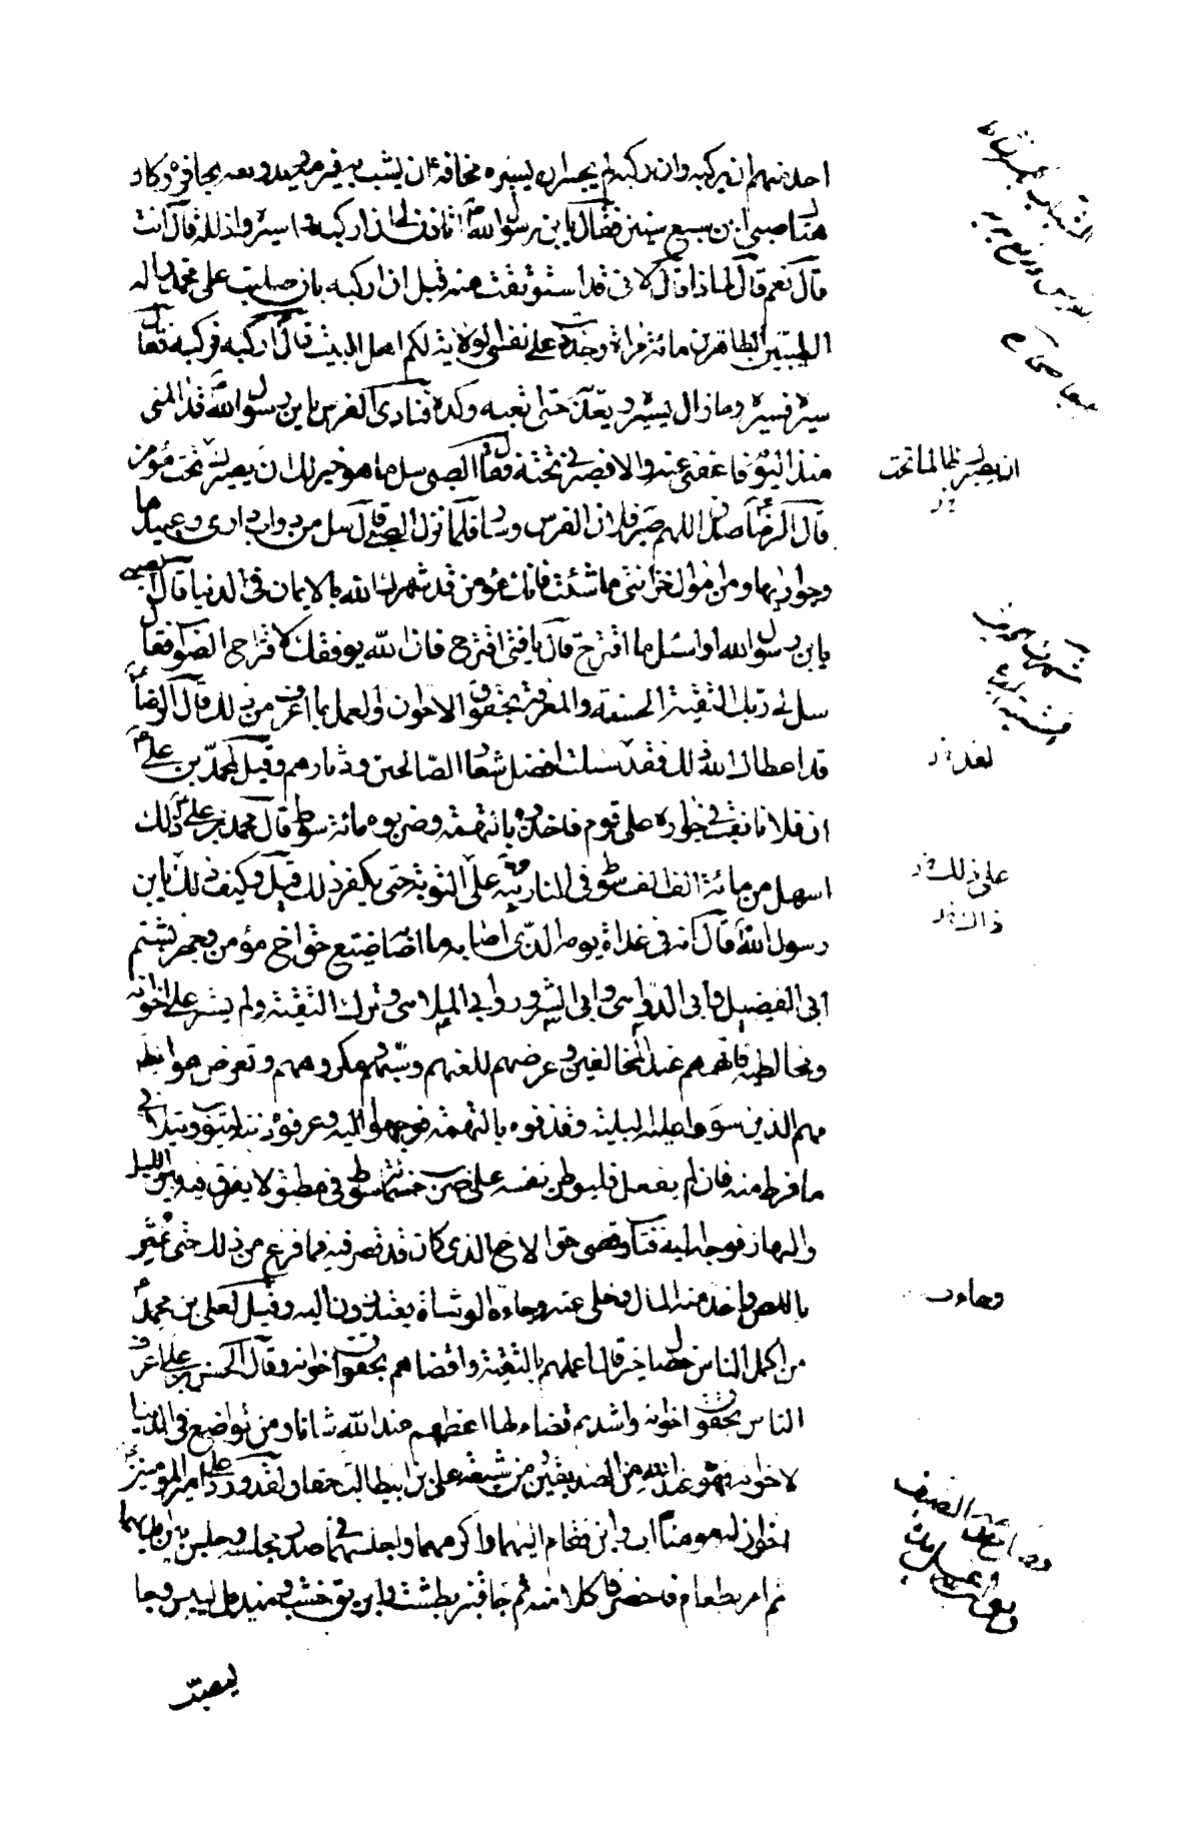 احد منهم ان يركبه وان ركبه لم يجسران يسيره مخافة ان يشب به فيرميه ويدوسه بحافره وكان
هناك صبي ابن سبع سنين فقال يابن رسول الله اتاذن لي ان اركبه و اسيره واذلله قال انت
قال نعم قال لماذا قال لاني قد استوثقت منه قبل ان اركبه بان صليت على محمد واله
الطيبين الطاهرين مائة مراة وجددت على نفسي الولاية لكم اهل البيت قال اركبه فركبه فقال
سيره فسيره وما زال يسيره ويعديه حتى اتعبه وكده فنادى الفرس يابن رسول الله قد المني
منذ اليوم فاعفني عنه والا فصبرني تحته فقال الصبي سل ما هو خير لك ان يصبرك تحت مؤمن
قال الرضا صدق اللهم صبره فلان الفرس وسار فلما نزل الصبي قال سل من دواب داري وعبيدها
وجواريها ومن اموال خزائني ما شئت فانك مؤمن قد شهرك الله بالايمان في الدنيا قال الصبي
يابن رسول الله او اسئل ما اقترح قال يا فتى اقترح فان الله يوفقك لاقتراح الصواب فقال
سل لي ربك التقية الحسنة والمعرفة بحقوق الاخوان والعمل بما اعرف من ذلك قال الرضا
قد اعطاك الله ذلك فقد سئلت افضل شعار الصالحين ودثارهم وقيل لمحمد بن علي
ان فلانا نقب في جواره على قوم فاخذوه بالتهمة وضربوه مائة سوط قال محمد بن علي ذلك
اسهل من مائة الف الف سوط في النار نبه على التوبة حتى يكفر ذلك قيل وكيف ذلك يابن
رسول الله قال انه في غداة يومه الذي اصابه ما اصابه ضيع حق اخ مؤمن وجهر بشتم
ابي الفضيل وابي الدواهي وابي الشرور وابي الملاهي وترك التقية ولم يستر على اخوانه
ومخالطيه فاتهمهم عند المخالفين وعرضهم للعنهم وسبهم ومكروههم وتعرض هو ايضا
فهم الذين سووا عليه البلية وقذفوه بالتهمة فوجهوا اليه وعرفوه ذنبه ليتوب ويتلافى
ما فرط منه فان لم يفعل فليوطن نفسه على ضرب خمسمائة سوط في مطبق لا يفرق فيه بين الليل
والنهار فوجه اليه فتاب وقضى حق الاخ الذي كان قد قصر فيه فما فرغ من ذلك حتى عثر
باللص واخذ منه المال وخلى عنه وجاءه الوشاة يعتذرون اليه وقيل لعلي بن محمد
من اكمل الناس خصال خير قال اعملهم بالتقية واقضاهم بحقوق اخوانه وقال الحسن بن علي اعرف
الناس بحقوق اخوانه واشدهم قضاء لها اعظمهم عند الله شانا ومن تواضع في الدنيا
لاخوانه فهو عند الله من الصديقين ومن شيعة علي بن ابيطالب حقا ولقد ورد على امير المؤمنين
اخوان له مومنان اب وابن فقام اليهما واكرمهما واجلسهما في صدر مجلسه وجلس بين ايديهما
ثم امر بطعام فاحضر فاكلا منه ثم جاء قنبر بطشت وابريق خشب ومنديل لليبس وجا
ان يصبر لي ظالما تحت
لقد
على ذلك
ذاك
وجاءت
ليصب